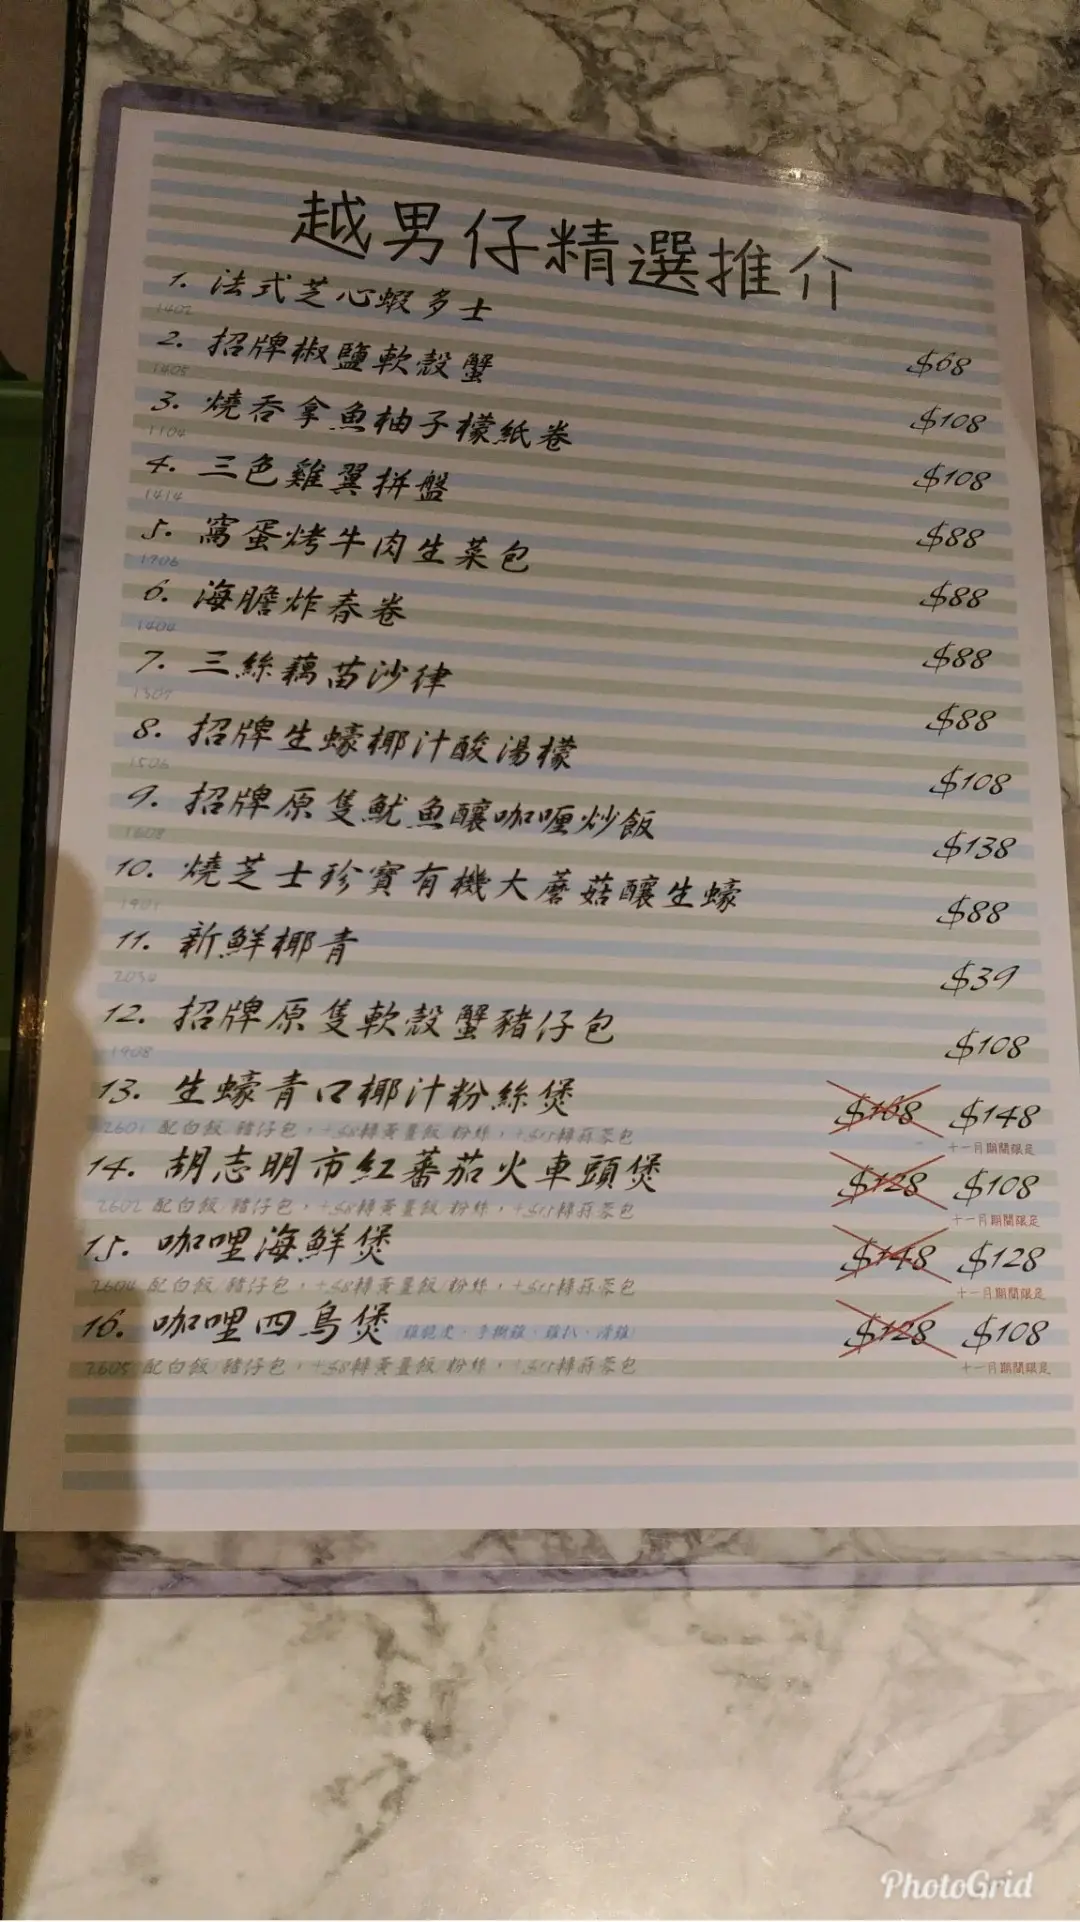 越男仔精選推介
1. 法式芝心蝦多士 $68
1402
2. 招牌椒鹽軟殼蟹 $108
1405
3. 燒吞拿魚柚子檬紙卷 $108
1104
4. 三色雞翼拼盤 $88
1414
5. 窩蛋烤牛肉生菜包 $88
1706
6. 海膽炸春卷 $88
1404
7. 三絲藕苗沙律 $88
8. 招牌生蠔椰汁酸湯檬 $108
1506
9. 招牌原隻魷魚釀咖喱炒飯 $138
10. 燒芝士珍寶有機大蘑菇釀生蠔 $88
11. 新鮮椰青 $39
12. 招牌原隻軟殼蟹豬仔包 $108
1908
13. 生蠔青口椰汁粉絲煲 $168 $148
2601 配白飯/豬仔包，+$8轉黃薑飯/粉絲，+$15轉蒜蓉包 十一月期間限定
14. 胡志明市紅蕃茄火車頭煲 $128 $108
2602 配白飯/豬仔包，+$8轉黃薑飯/粉絲，+$15轉蒜蓉包 十一月期間限定
15. 咖哩海鮮煲 $148 $128
2604 配白飯/豬仔包，+$8轉黃薑飯/粉絲，+$15轉蒜蓉包 十一月期間限定
16. 咖哩四鳥煲 $128 $108
2605 配白飯/豬仔包，+$8轉黃薑飯/粉絲，+$15轉蒜蓉包 十一月期間限定
PhotoGrid